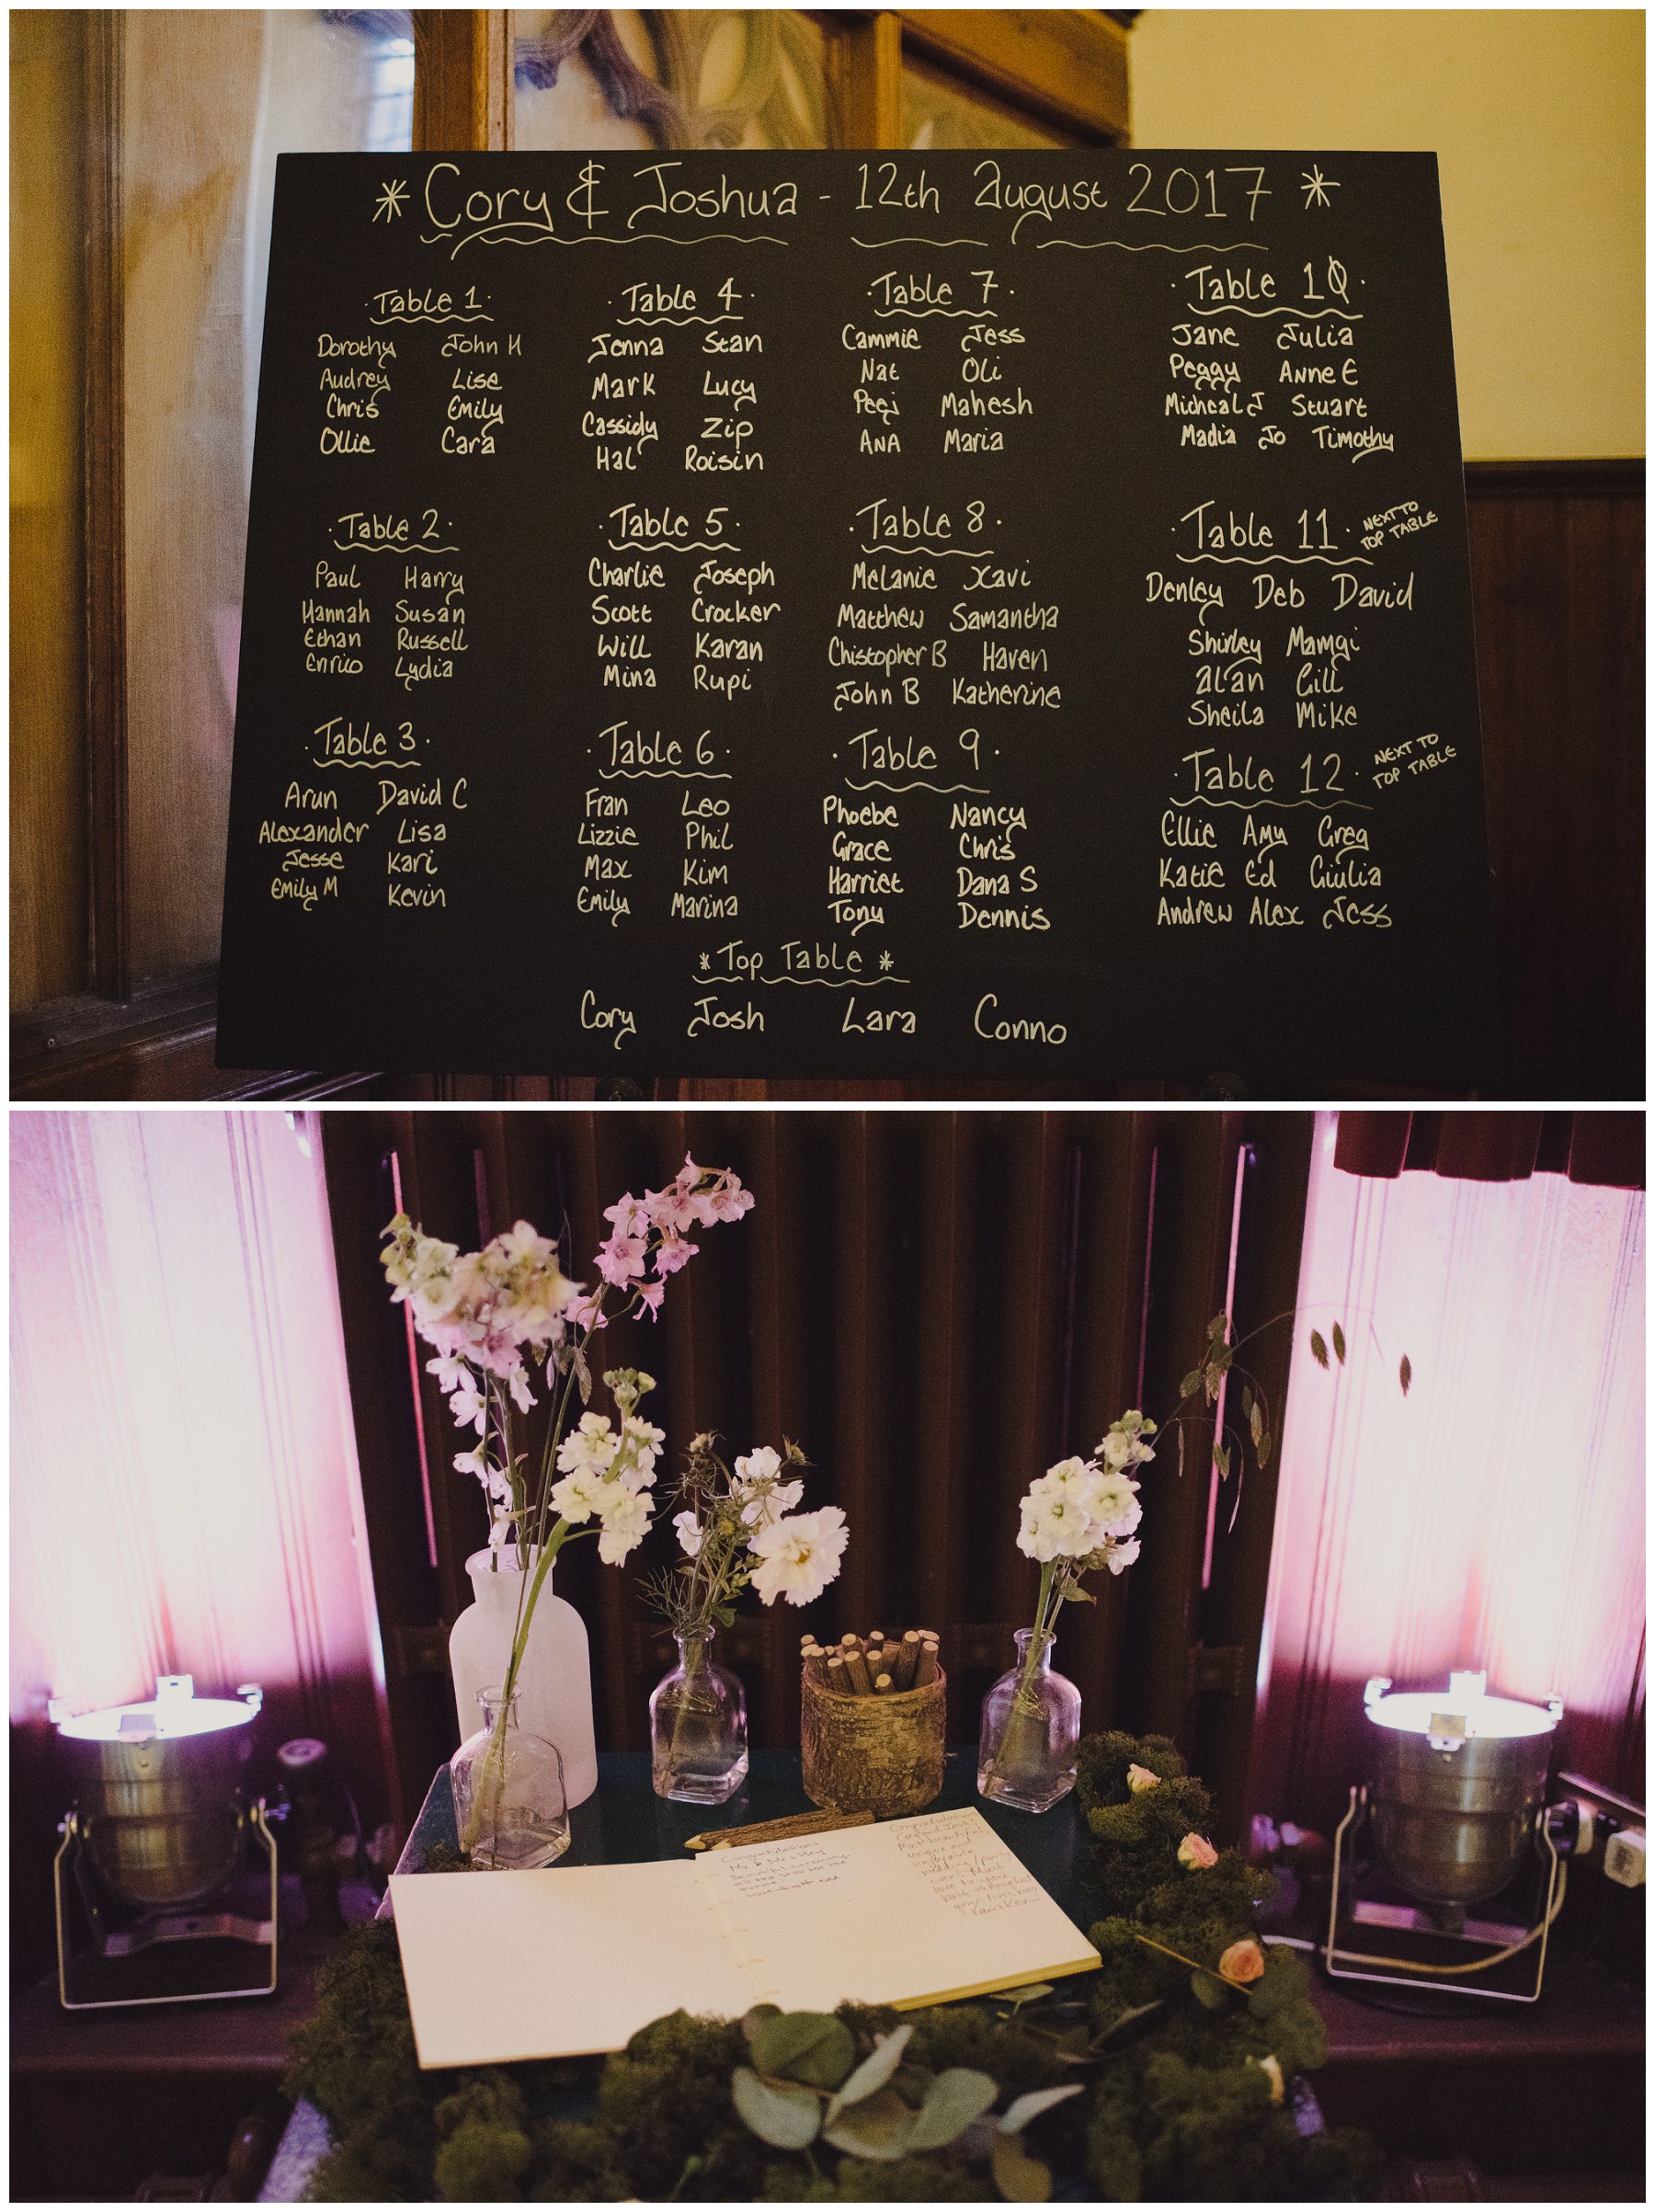 * Cory & Joshua - 12th August 2017 *
· Table 1 ·
Dorothy John H
Audrey Lise
Chris Emily
Ollie Cara
· Table 2 ·
Paul Harry
Hannah Susan
Ethan Russell
Enrico Lydia
· Table 3 ·
Arun David C
Alexander Lisa
Jesse Kari
Emily M Kevin
· Table 4 ·
Jenna Stan
Mark Lucy
Cassidy Zip
Hal Roisin
· Table 5 ·
Charlie Joseph
Scott Crocker
Will Karan
Mina Rupi
· Table 6 ·
Fran Leo
Lizzie Phil
Max Kim
Emily Marina
· Table 7 ·
Cammie Jess
Nat Oli
Pegi Mahesh
Ana Maria
· Table 8 ·
Melanie Xavi
Matthew Samantha
Chistopher B Haven
John B Katherine
· Table 9 ·
Phoebe Nancy
Grace Chris
Harriet Dana S
Tony Dennis
· Table 10 ·
Jane Julia
Peggy Anne E
Micheal J Stuart
Madia Jo Timothy
· Table 11 · NEXT TO
TOP TABLE
Denley Deb David
Shirley Mamgi
Alan Gill
Sheila Mike
· Table 12 · NEXT TO
TOP TABLE
Ellie Amy Greg
Katie Ed Giulia
Andrew Alex Jess
* Top Table *
Cory Josh Lara Conno
Congratulations
Beautiful ceremony,
all the best for the
future
Most beautiful
unique and
wedding / party
ever. Much
love to you